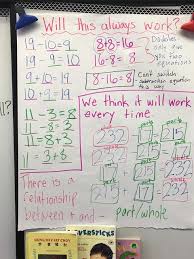 Will this always work?
19 - 10 = 9
19 - 9 = 10
9 + 10 = 19
10 + 9 = 19
8 + 8 = 16
Doubles
only give
you two
equations
8 - 16 = 8
Can't switch
subtraction equation
this way
11 - 3 = 8
11 - 8 = 3
11 = 8 + 3
11 = 3 + 8
We think it will work
every time.
232
215
There is a
relationship
between + and -
part/whole